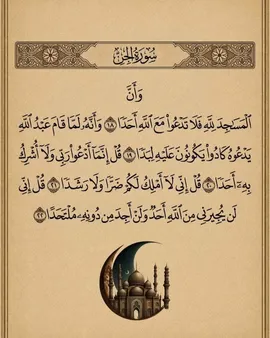 سُورَةُ الجِنِّ
وَأَنَّ
ٱلْمَسَٰجِدَ لِلَّهِ فَلَا تَدْعُوا۟ مَعَ ٱللَّهِ أَحَدًا ١٨ وَأَنَّهُۥ لَمَّا قَامَ عَبْدُ ٱللَّهِ
يَدْعُوهُ كَادُوا۟ يَكُونُونَ عَلَيْهِ لِبَدًا ١٩ قُلْ إِنَّمَآ أَدْعُوا۟ رَبِّى وَلَآ أُشْرِكُ
بِهِۦٓ أَحَدًا ٢٠ قُلْ إِنِّى لَآ أَمْلِكُ لَكُمْ ضَرًّا وَلَا رَشَدًا ٢١ قُلْ إِنِّى
لَن يُجِيرَنِى مِنَ ٱللَّهِ أَحَدٌ وَلَنْ أَجِدَ مِن دُونِهِۦ مُلْتَحَدًا ٢٢